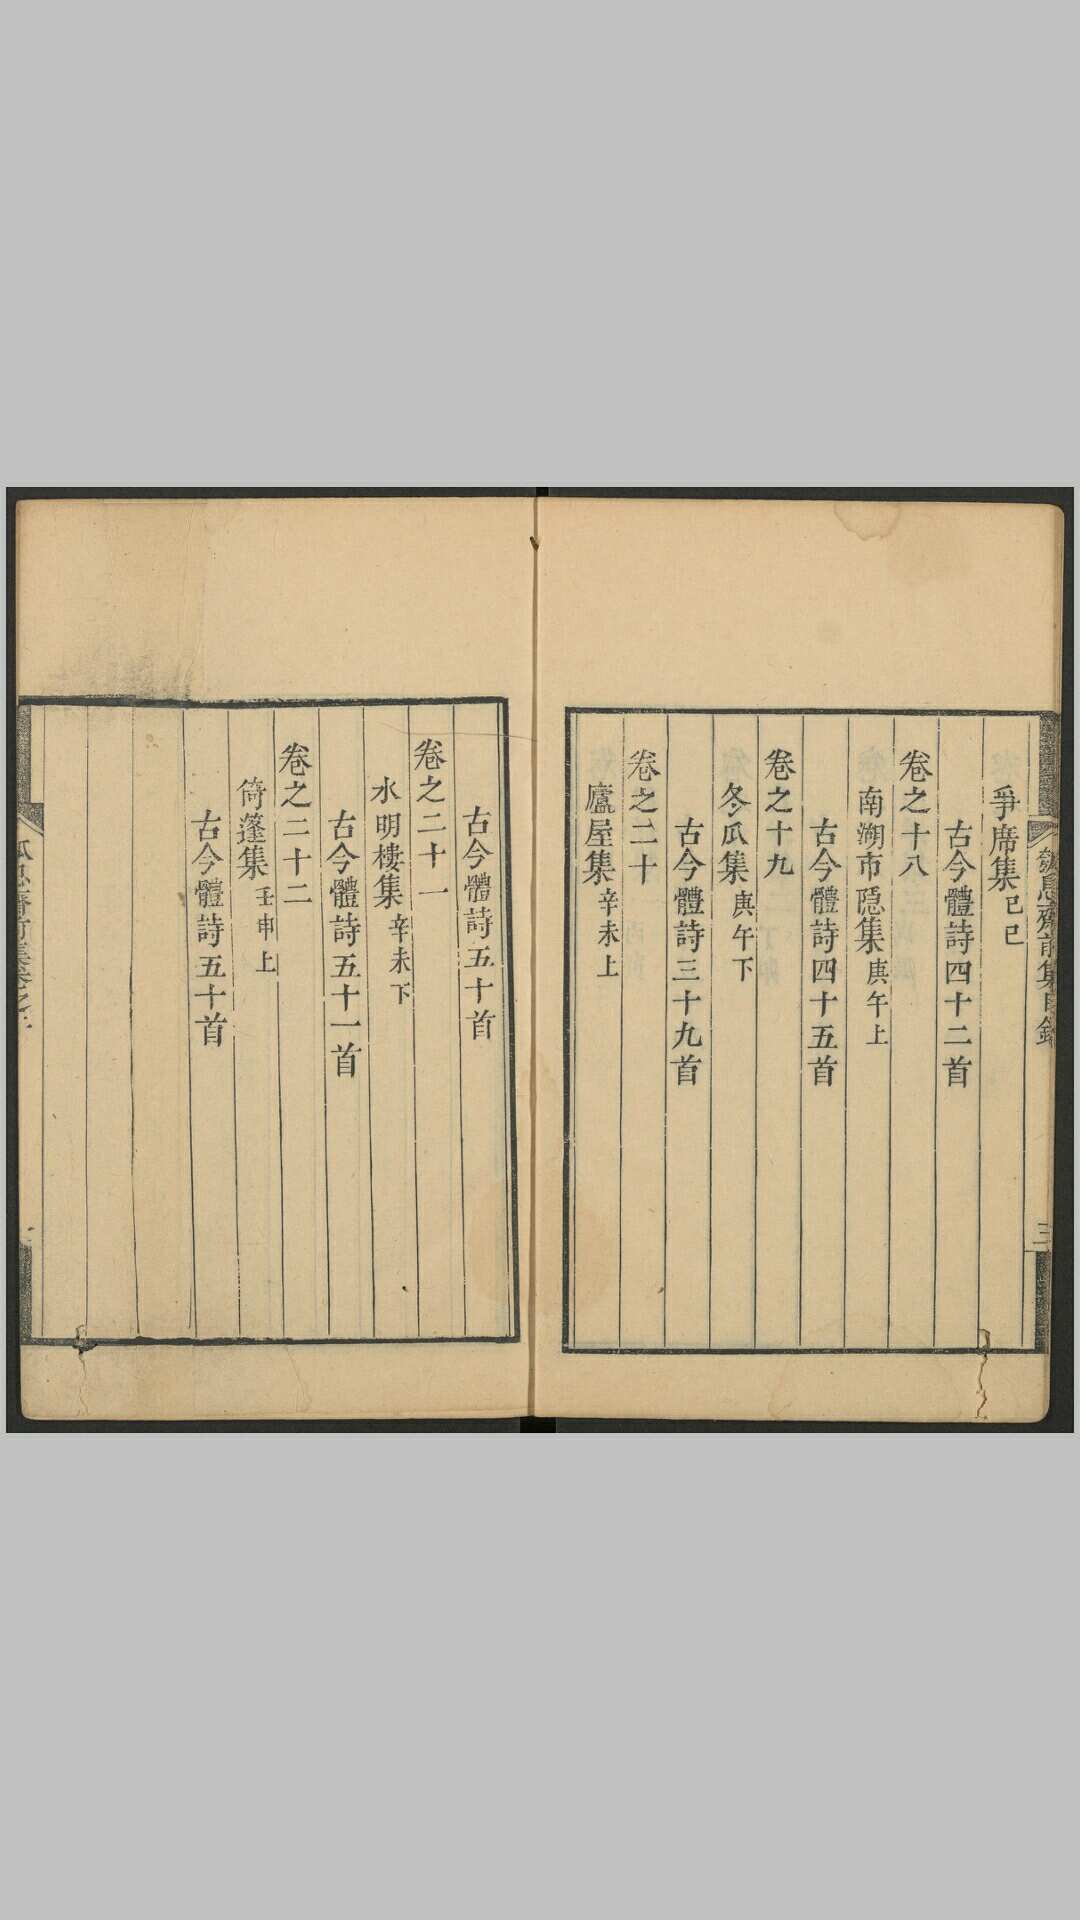 爭席集己巳
古今體詩四十二首
卷之十八
南湖市隱集庚午上
古今體詩四十五首
卷之十九
冬瓜集庚午下
古今體詩三十九首
卷之二十
廬屋集辛未上
古今體詩五十首
卷之二十一
水明樓集辛未下
古今體詩五十一首
卷之二十二
倚篷集壬申上
古今體詩五十首
息齋前集目錄
三